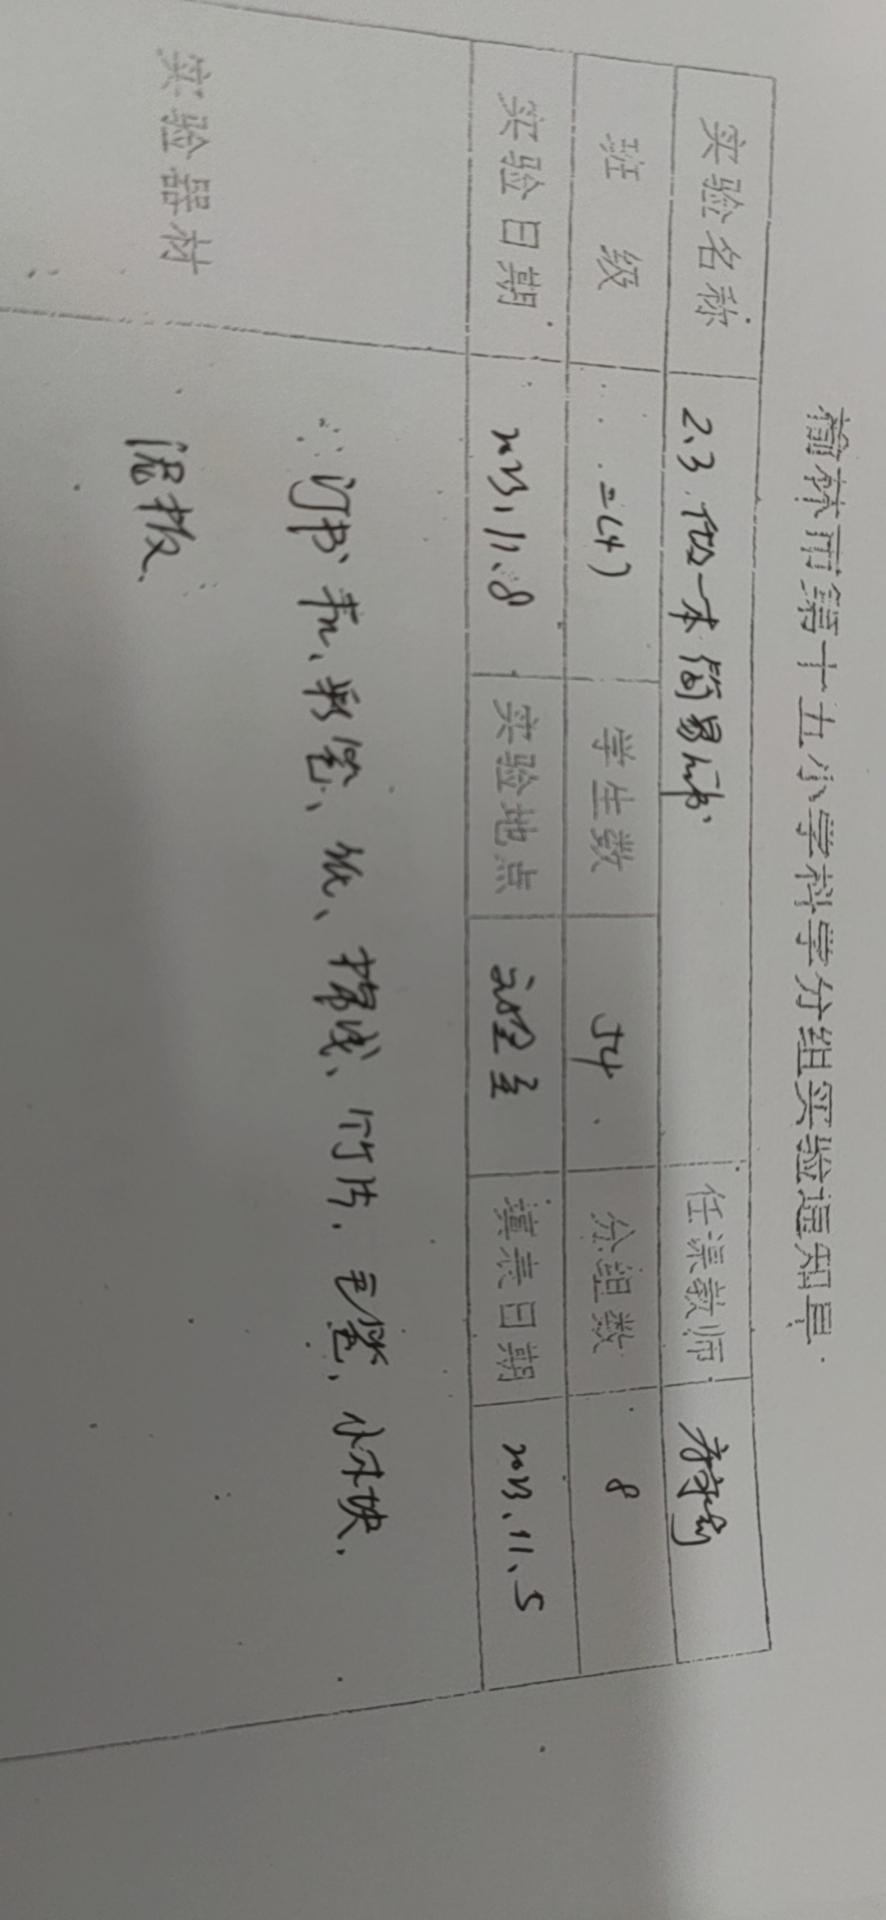 榆林市第十五小学科学分组实验通知单
实验名称 2.3 做一本简易的书 任课教师
班 级 二(4) 学生数 54 分组数 8
实验日期 2023.11.8 实验地点 实验室 填表日期 2023.11.5
实验器材 订书机、彩笔、纸、棉线、竹片、毛笔、小木块、
泥板、